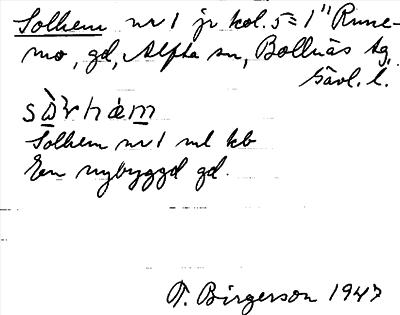 Solhem nr 1 jr kol. 5=1 "Rune-
mo, gd, Alfta sn, Bollnäs tg,
Gävl. l.
Solhem nr 1 ml kb
En nybyggd gd.
T. Birgerson 1947